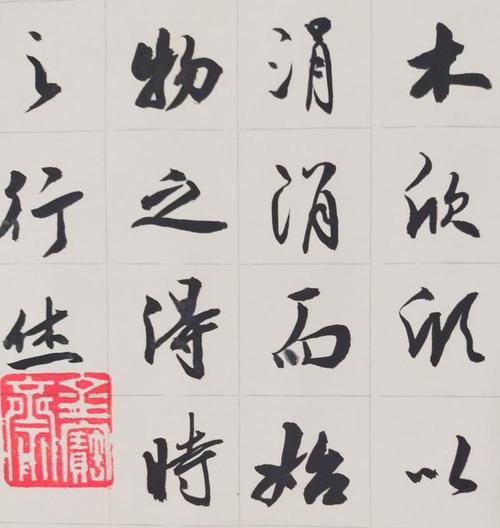 木欣欣以
涓涓而始
物之得時
之行休